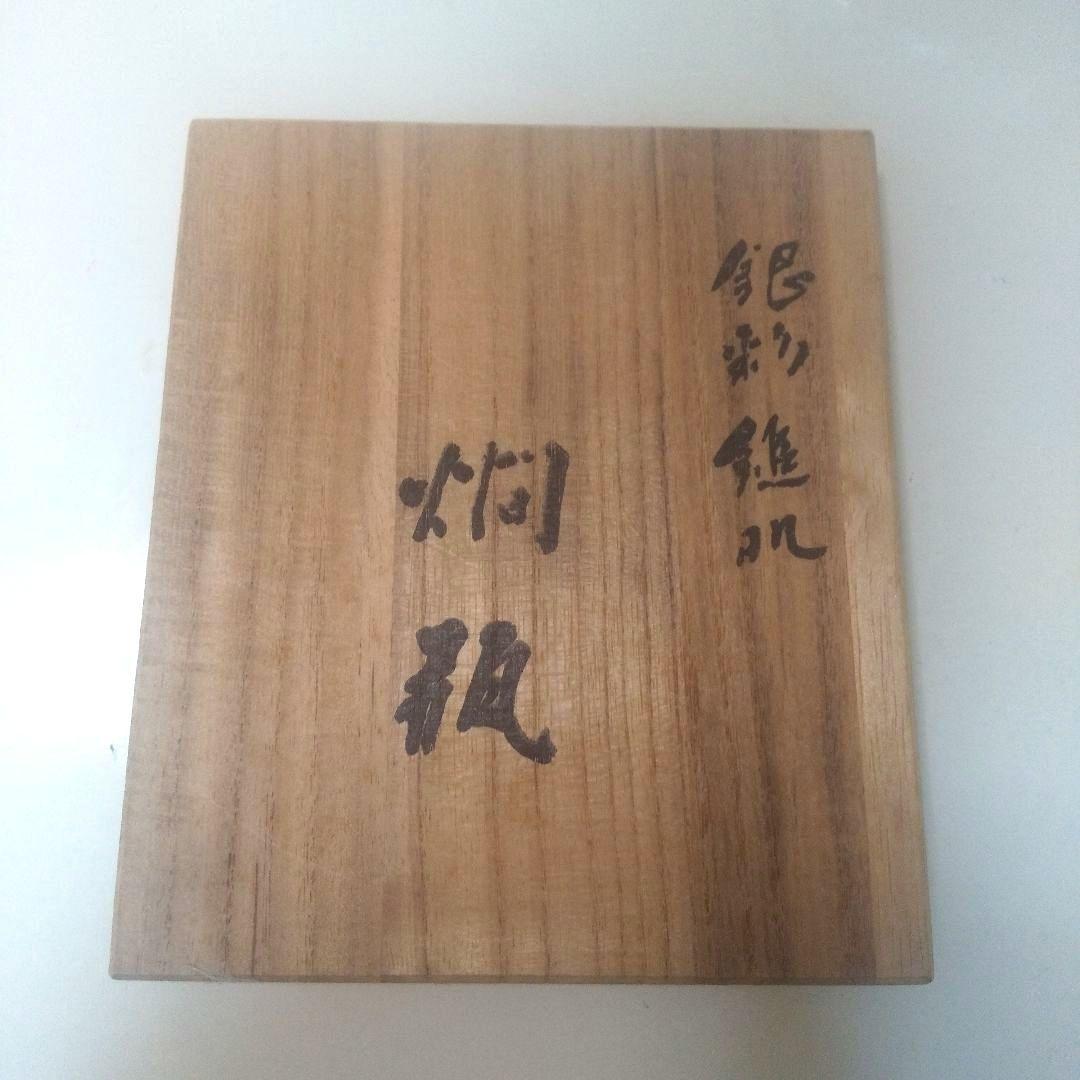 銀彩 鎚肌
燗瓶